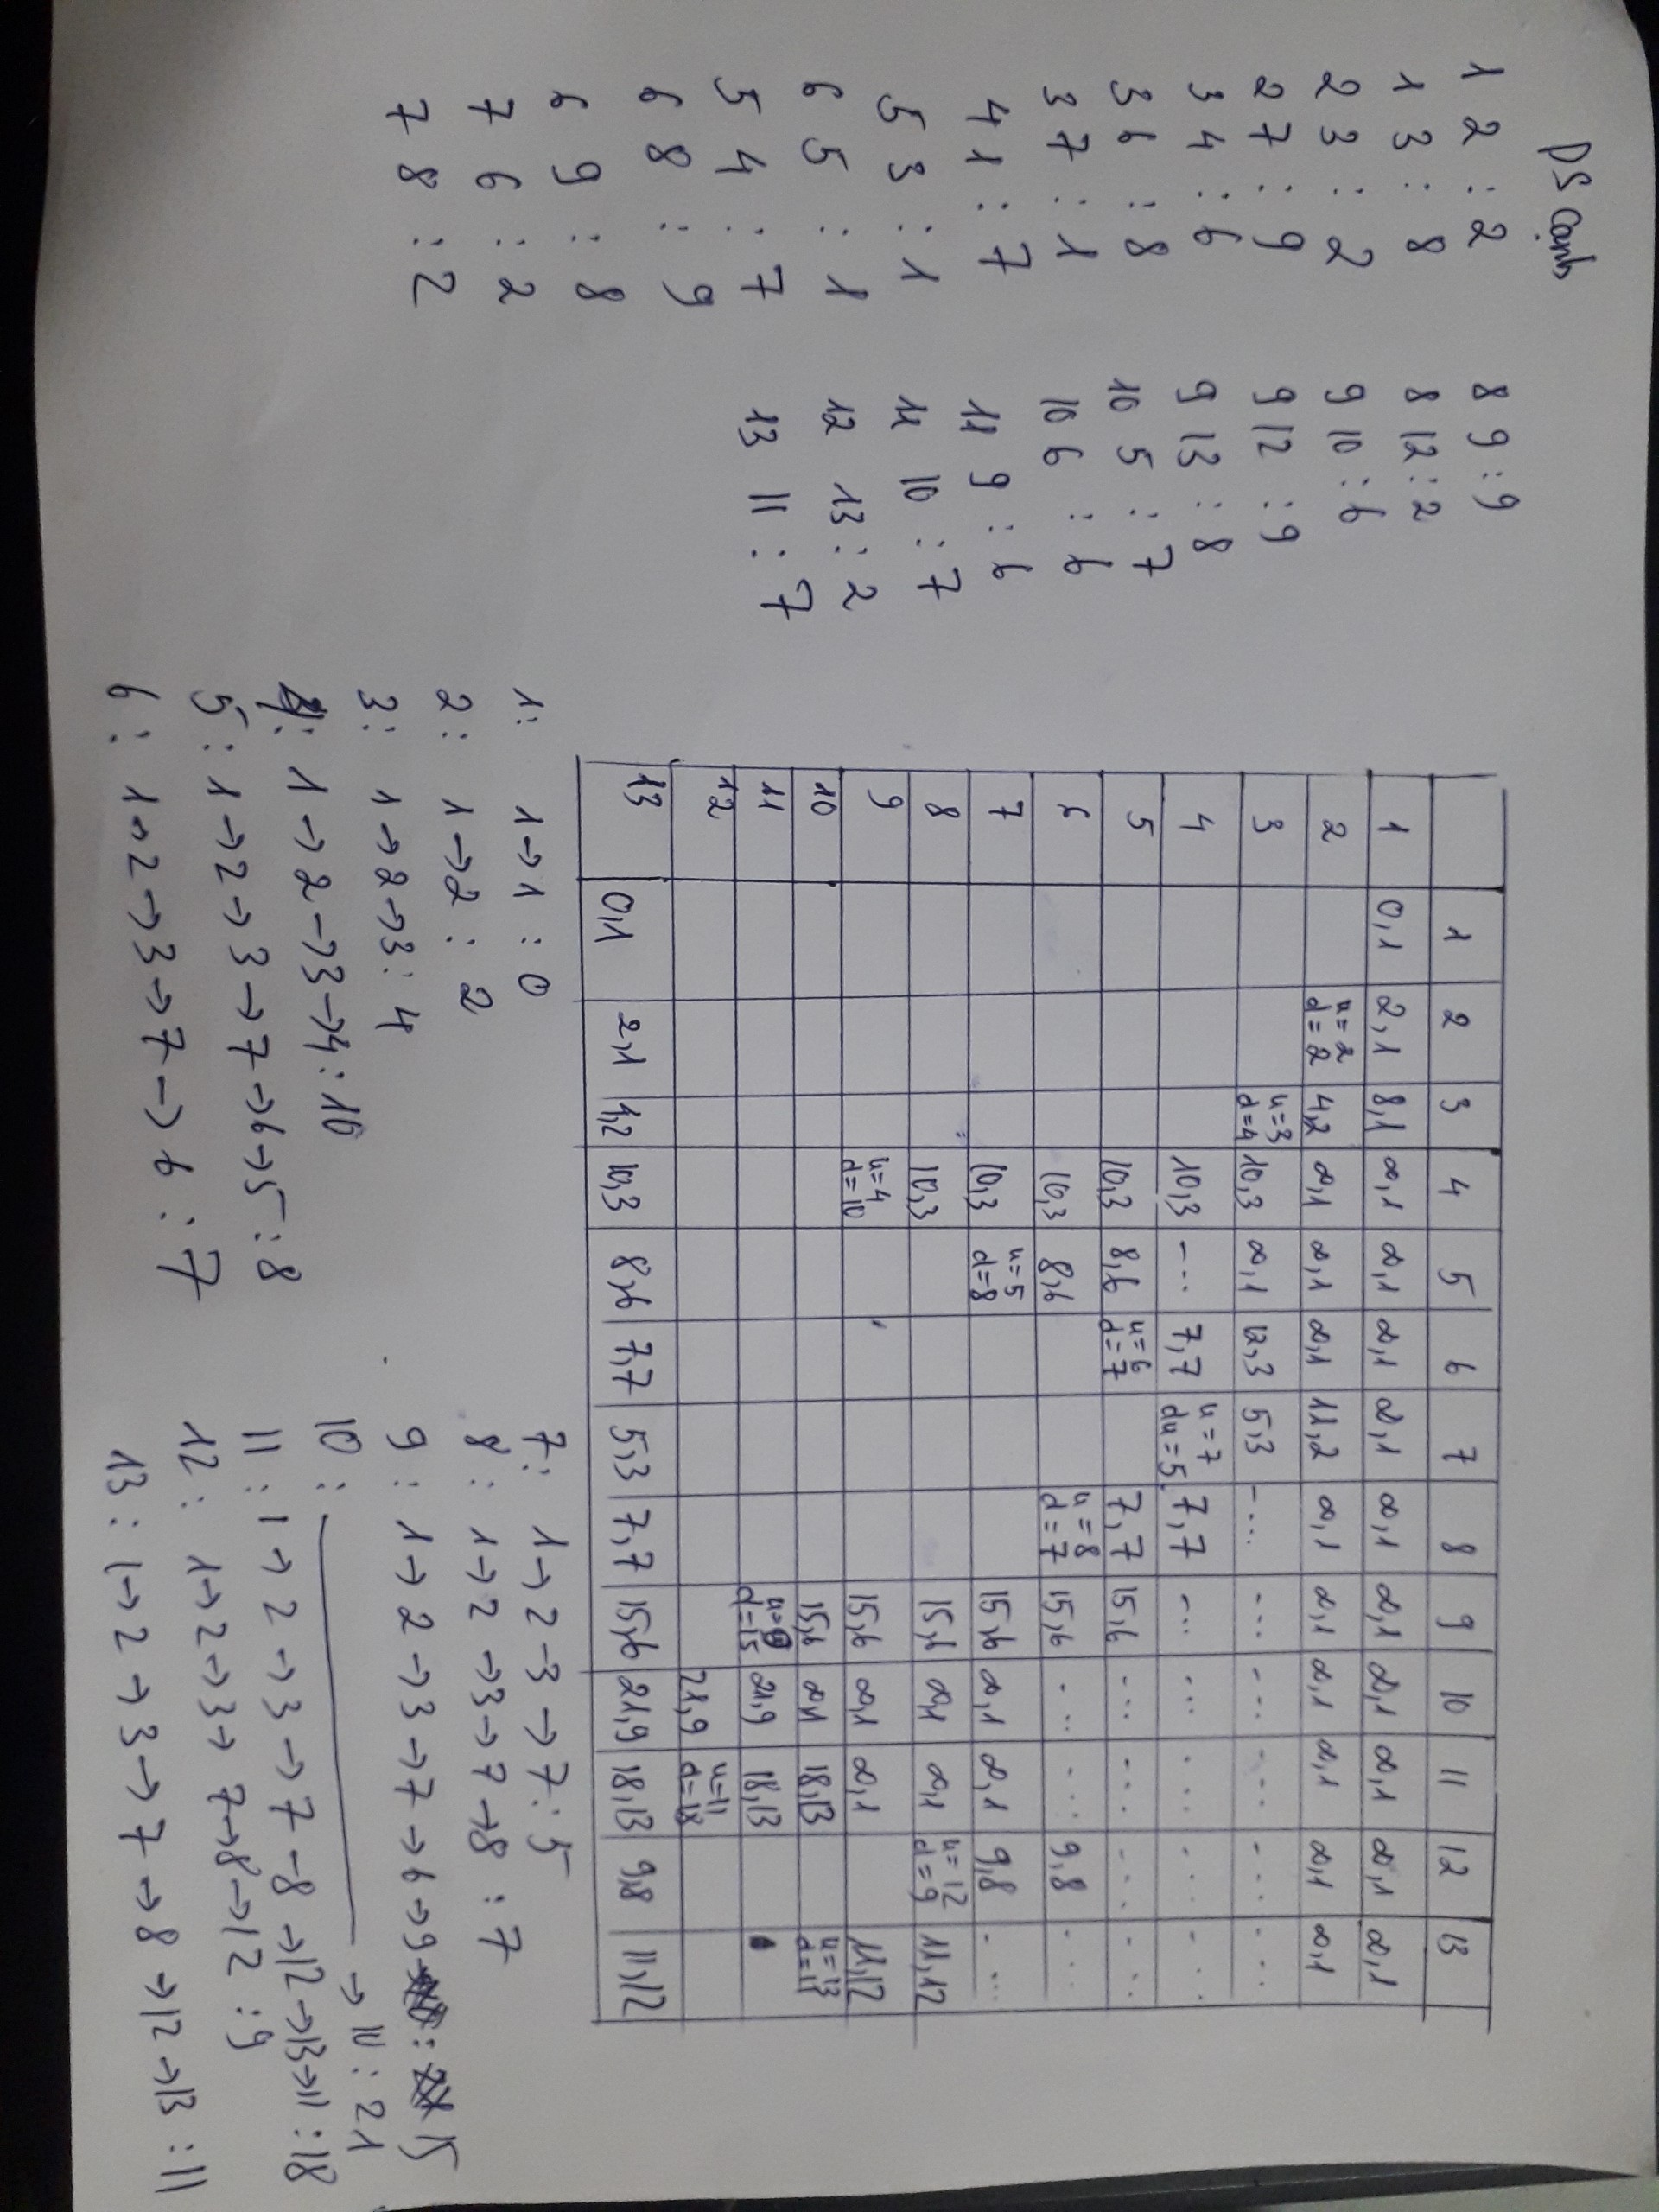 DS cạnh
1 2 : 2
1 3 : 8
2 3 : 2
2 7 : 9
3 4 : 6
3 6 : 8
3 7 : 1
4 1 : 7
5 3 : 1
6 5 : 1
5 4 : 7
6 8 : 9
6 9 : 8
7 6 : 2
7 8 : 2
8 9 : 9
8 12 : 2
9 10 : 6
9 12 : 9
9 13 : 8
10 5 : 7
10 6 : 6
11 9 : 6
11 10 : 7
12 13 : 2
13 11 : 7
1 2 3 4 5 6 7 8 9 10 11 12 13
1 0,1 2,1 8,1 ∞,1 ∞,1 ∞,1 ∞,1 ∞,1 ∞,1 ∞,1 ∞,1 ∞,1 ∞,1
2 u=2 d=2 4,2 ∞,1 ∞,1 ∞,1 11,2 ∞,1 ∞,1 ∞,1 ∞,1 ∞,1 ∞,1
3 u=3 d=4 10,3 ∞,1 12,3 5,3 -... --- --- --- --- ---
4 10,3 --- 7,7 u=7 du=5 7,7 --- --- --- --- ---
5 10,3 8,6 u=6 d=7 7,7 15,6 --- --- --- ---
6 10,3 8,6 u=8 d=7 15,6 --- --- 9,8 ---
7 10,3 u=5 d=8 15,6 ∞,1 ∞,1 9,8 ---
8 10,3 15,6 ∞,1 ∞,1 u=12 d=9 11,12
9 u=4 d=10 15,6 ∞,1 ∞,1 11,12
10 15,6 ∞,1 18,13 u=13 d=11
11 u=9 d=15 21,9 18,13
12 21,9 u=11 d=18
13 0,1 2,1 4,2 10,3 8,6 7,7 5,3 7,7 15,6 21,9 18,13 9,8 11,12
1: 1→1 : 0
2: 1→2 : 2
3: 1→2→3: 4
4: 1→2→3→4: 10
5: 1→2→3→7→6→5 : 8
6: 1→2→3→7→6 : 7
7: 1→2-3→7: 5
8: 1→2→3→7→8 : 7
9: 1→2→3→7→6→9 : 15
10: ———→10 : 21
11: 1→2→3→7-8→12→13→11 : 18
12: 1→2→3→7→8→12 : 9
13: 1→2→3→7→8→12→13 : 11